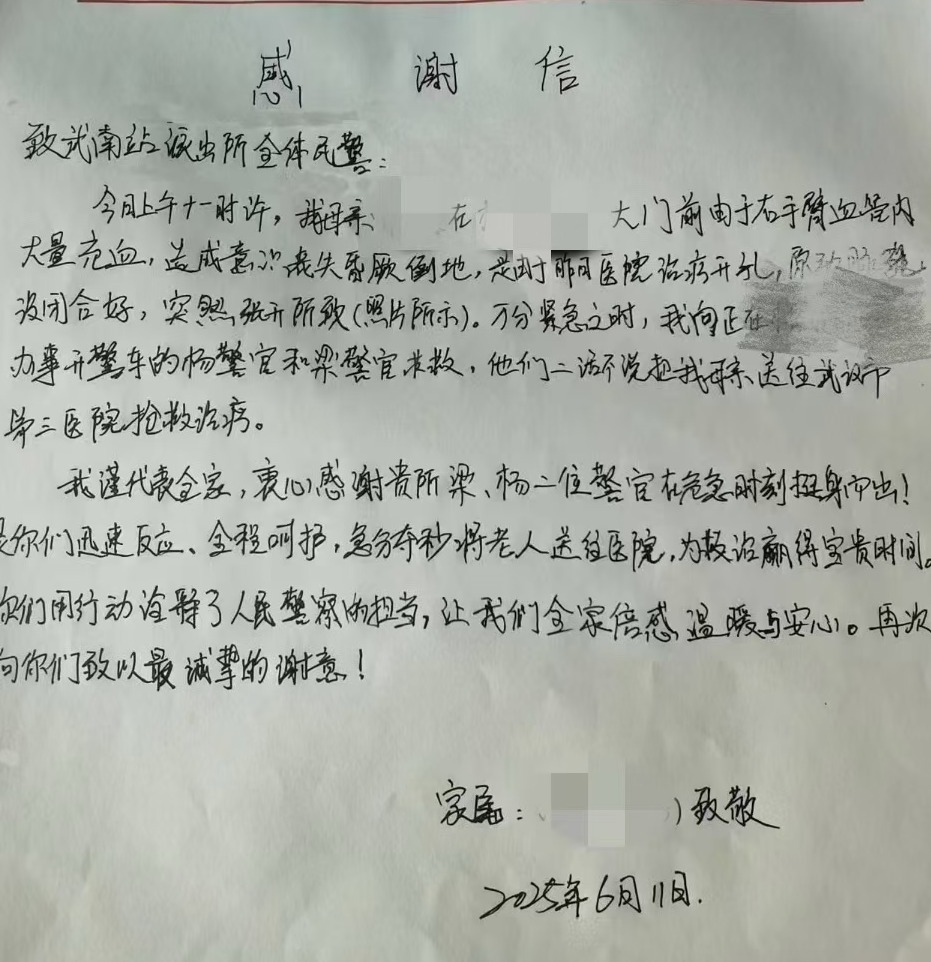 感谢信
致武南站派出所全体民警：
今日上午十一时许，我母亲 在 大门前由于右手臂血管内
大量充血，造成意识丧失昏厥倒地，是由于昨日医院治疗开孔，原
没闭合好，突然张开所致（照片所示）。万分紧急之时，我向正在
办事开警车的杨警官和梁警官求救，他们二话不说把我母亲送往武汉市
第三医院抢救治疗。
我谨代表全家，衷心感谢贵所梁、杨二位警官在危急时刻挺身而出！
是你们迅速反应、全程呵护，急分夺秒将老人送往医院，为救治赢得宝贵时间。
你们用行动诠释了人民警察的担当，让我们全家倍感温暖与安心。再次
向你们致以最诚挚的谢意！
家属： 致敬
2025年6月11日.